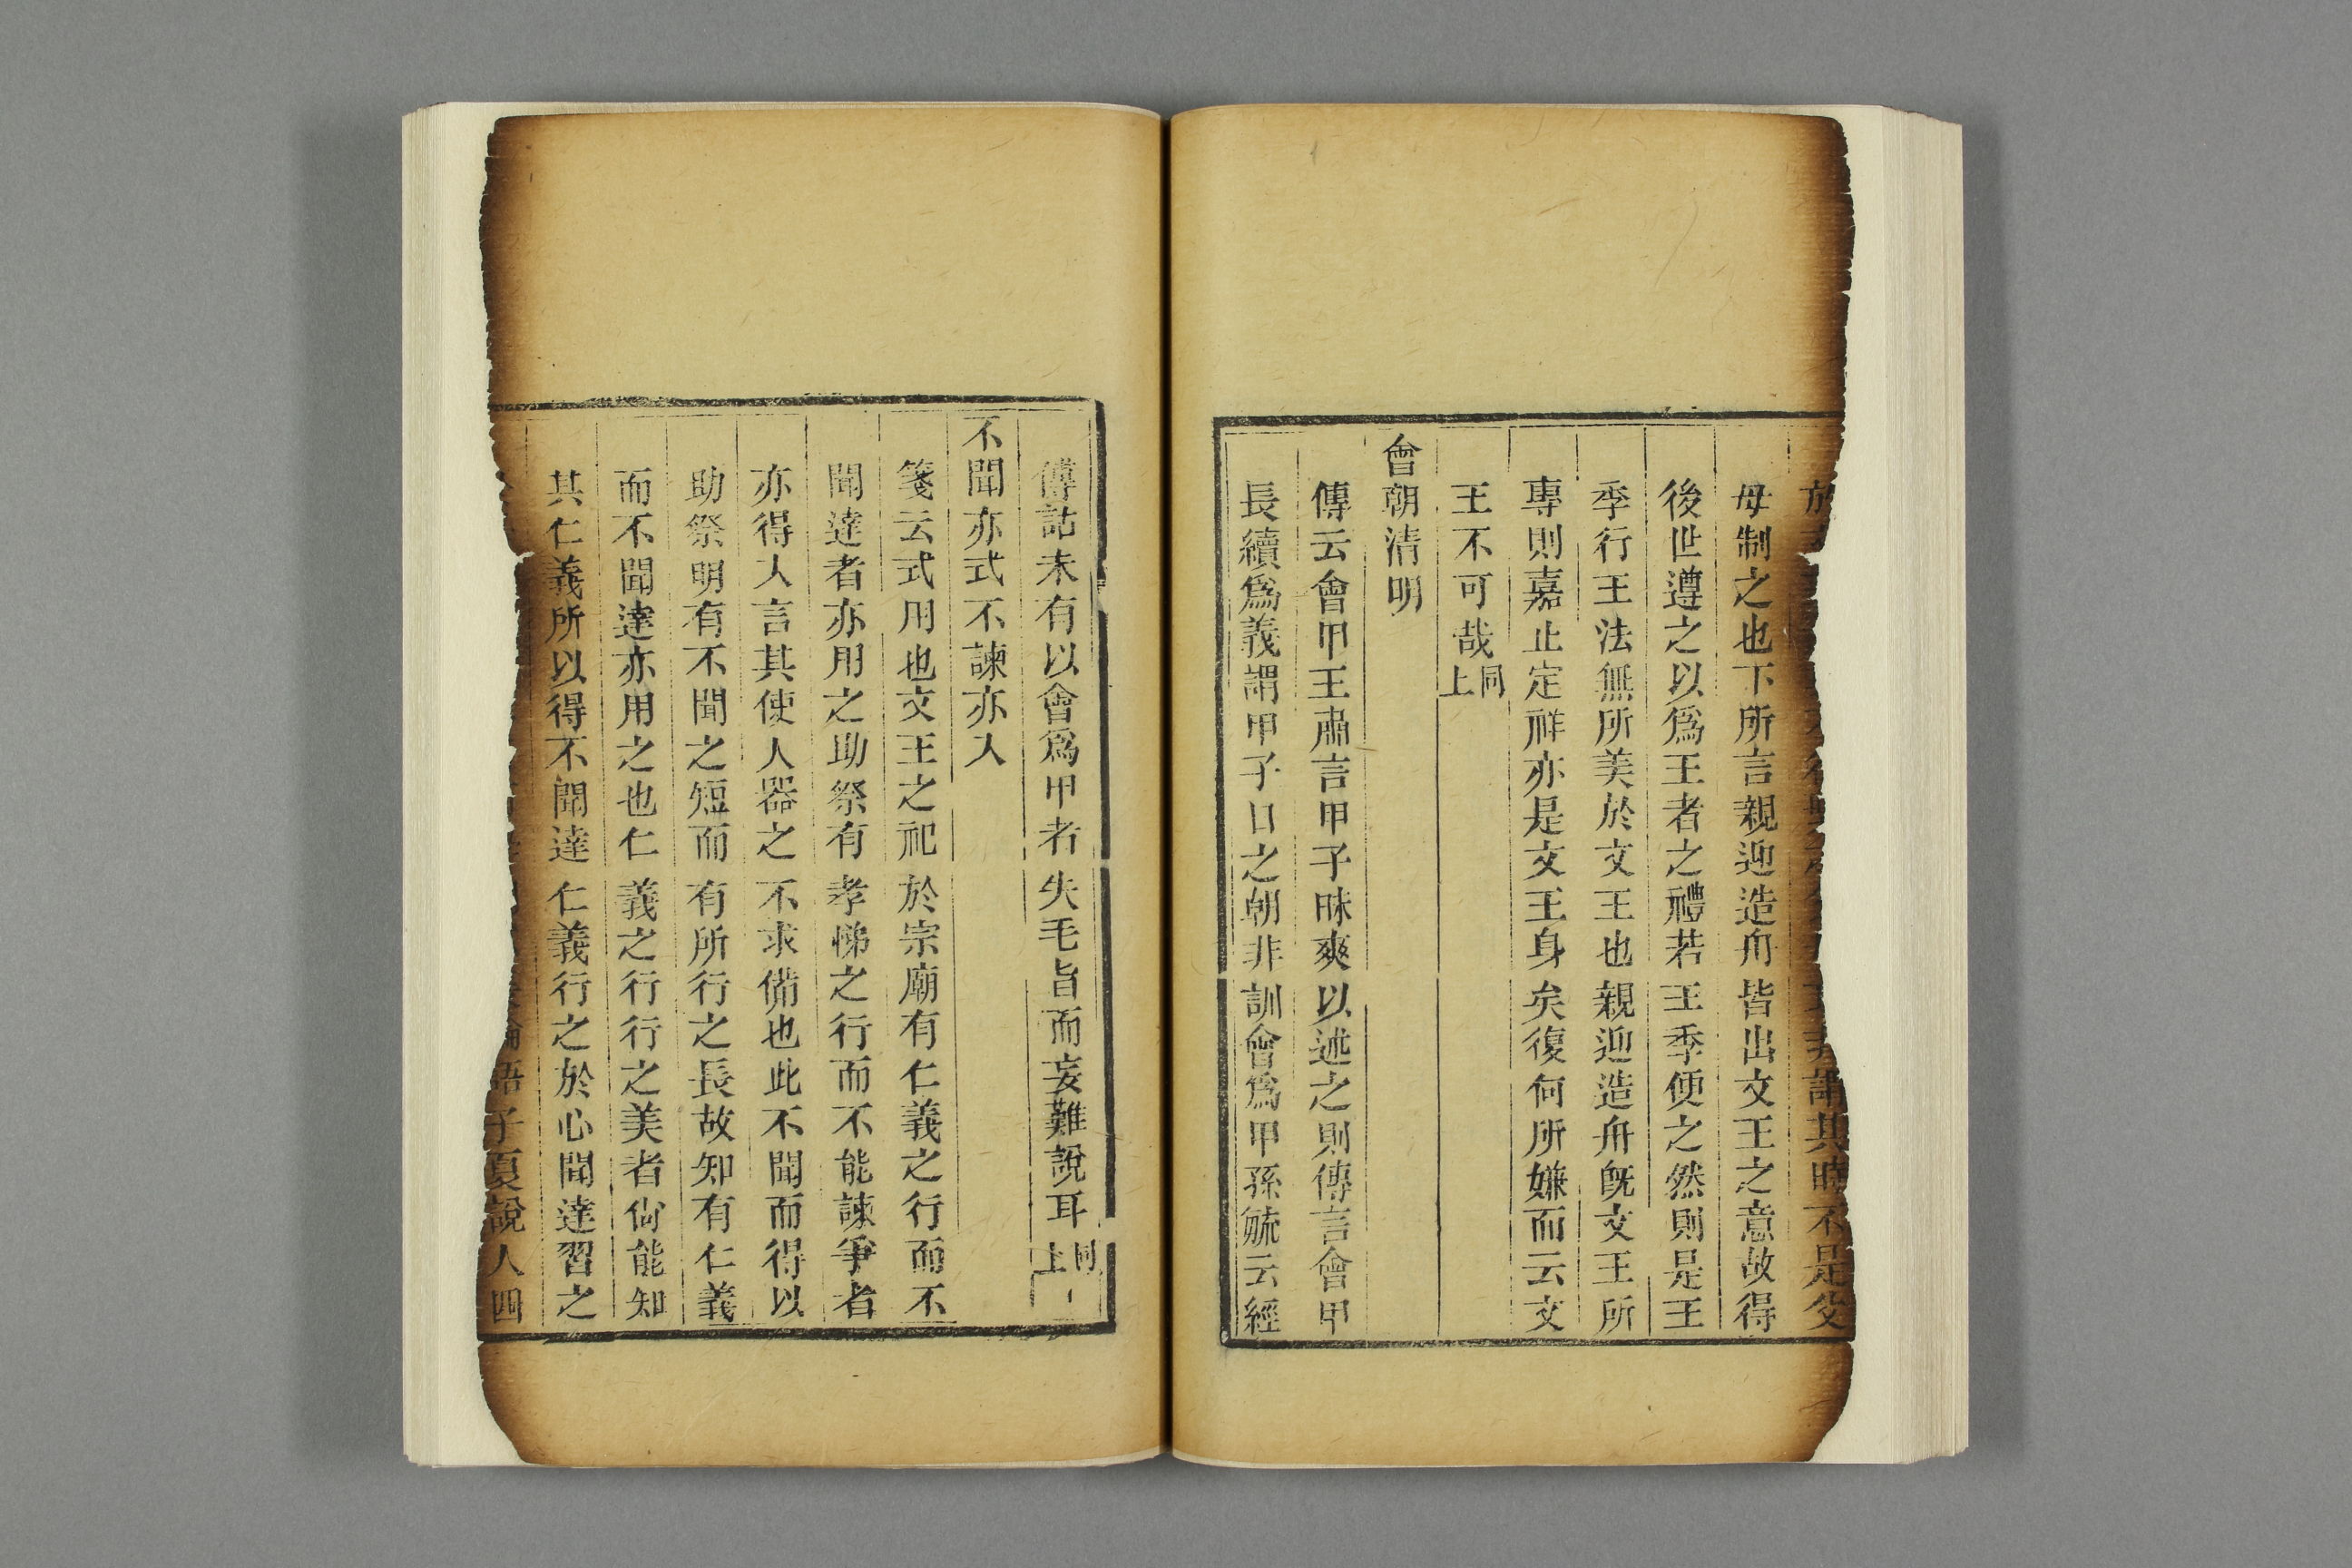 於謂其時不是父
母制之也下所言親迎造舟皆出文王之意故得
後世遵之以爲王者之禮若王季便之然則是王
季行王法無所美於文王也親迎造舟旣文王所
專則嘉止定祥亦是文王身矣復何所嫌而云文
王不可哉同上
會朝淸明
傳云會甲王肅言甲子昧爽以述之則傳言會甲
長續爲義謂甲子日之朝非訓會爲甲孫毓云經
傳詁未有以會爲甲者失毛旨而妄難說耳同上
不聞亦式不諫亦入
箋云式用也文王之祀於宗廟有仁義之行而不
聞達者亦用之助祭有孝悌之行而不能諫爭者
亦得入言其使人器之不求備也此不聞而得以
助祭明有不聞之短而有所行之長故知有仁義
而不聞達亦用之也仁義之行行之美者尙能知
其仁義所以得不聞達仁義行之於心聞達習之
語子夏說人四